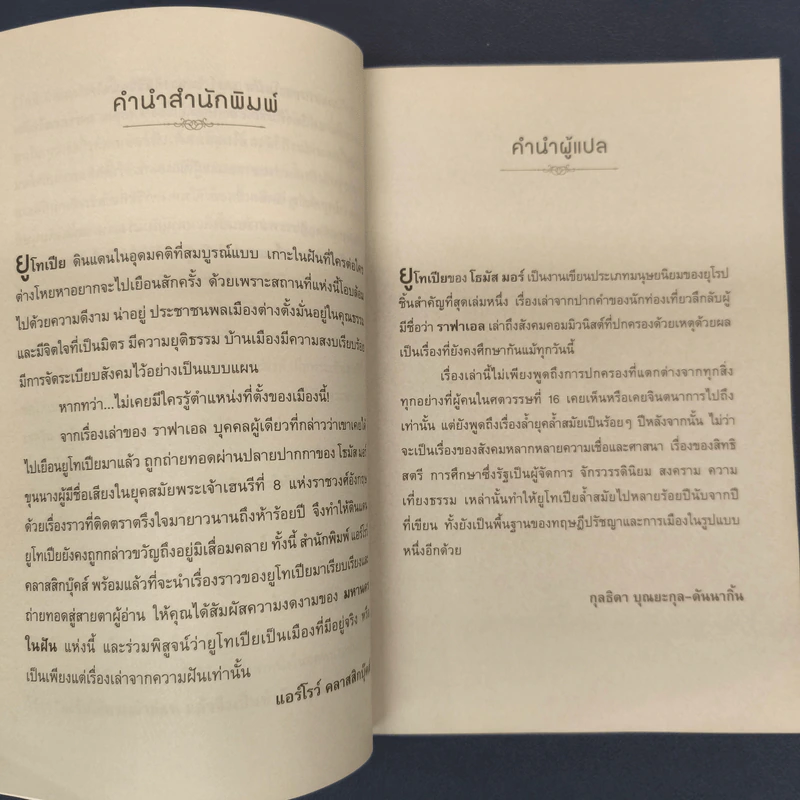 คำนำสำนักพิมพ์
ยูโทเปีย ดินแดนในอุดมคติที่สมบูรณ์แบบ เกาะในฝันที่ใครต่อใคร
ต่างโหยหาอยากจะไปเยือนสักครั้ง ด้วยเพราะสถานที่แห่งนี้โอบล้อม
ไปด้วยความดีงาม น่าอยู่ ประชาชนพลเมืองต่างตั้งมั่นอยู่ในคุณธรรม
และมีจิตใจที่เป็นมิตร มีความยุติธรรม บ้านเมืองมีความสงบเรียบร้อย
มีการจัดระเบียบสังคมไว้อย่างเป็นแบบแผน
หากทว่า...ไม่เคยมีใครรู้ตำแหน่งที่ตั้งของเมืองนี้!
จากเรื่องเล่าของ ราฟาเอล บุคคลผู้เดียวที่กล่าวว่าเขาเคยได้
ไปเยือนยูโทเปียมาแล้ว ถูกถ่ายทอดผ่านปลายปากกาของ โธมัส มอร์
ขุนนางผู้มีชื่อเสียงในยุคสมัยพระเจ้าเฮนรีที่ 8 แห่งราชวงศ์อังกฤษ
ด้วยเรื่องราวที่ติดตราตรึงใจมายาวนานถึงห้าร้อยปี จึงทำให้ดินแดน
ยูโทเปียยังคงถูกกล่าวขวัญถึงอยู่มิเสื่อมคลาย ทั้งนี้ สำนักพิมพ์ แอร์โรว์
คลาสสิกบุ๊คส์ พร้อมแล้วที่จะนำเรื่องราวของยูโทเปียมาเรียบเรียงและ
ถ่ายทอดสู่สายตาผู้อ่าน ให้คุณได้สัมผัสความงดงามของ มหานคร
ในฝัน แห่งนี้ และร่วมพิสูจน์ว่ายูโทเปียเป็นเมืองที่มีอยู่จริง หรือ
เป็นเพียงแต่เรื่องเล่าจากความฝันเท่านั้น
แอร์โรว์ คลาสสิกบุ๊คส์
คำนำผู้แปล
ยูโทเปียของ โธมัส มอร์ เป็นงานเขียนประเภทมนุษยนิยมของยุโรป
ชิ้นสำคัญที่สุดเล่มหนึ่ง เรื่องเล่าจากปากคำของนักท่องเที่ยวลึกลับผู้
มีชื่อว่า ราฟาเอล เล่าถึงสังคมคอมมิวนิสต์ที่ปกครองด้วยเหตุด้วยผล
เป็นเรื่องที่ยังคงศึกษากันแม้ทุกวันนี้
เรื่องเล่านี้ไม่เพียงพูดถึงการปกครองที่แตกต่างจากทุกสิ่ง
ทุกอย่างที่ผู้คนในศตวรรษที่ 16 เคยเห็นหรือเคยจินตนาการไปถึง
เท่านั้น แต่ยังพูดถึงเรื่องล้ำยุคล้ำสมัยเป็นร้อยๆ ปีหลังจากนั้น ไม่ว่า
จะเป็นเรื่องของสังคมหลากหลายความเชื่อและศาสนา เรื่องของสิทธิ
สตรี การศึกษาซึ่งรัฐเป็นผู้จัดการ จักรวรรดินิยม สงคราม ความ
เที่ยงธรรม เหล่านั้นทำให้ยูโทเปียล้ำสมัยไปหลายร้อยปีนับจากปี
ที่เขียน ทั้งยังเป็นพื้นฐานของทฤษฎีปรัชญาและการเมืองในรูปแบบ
หนึ่งอีกด้วย
กุลธิดา บุณยะกุล-ดันนากิ้น